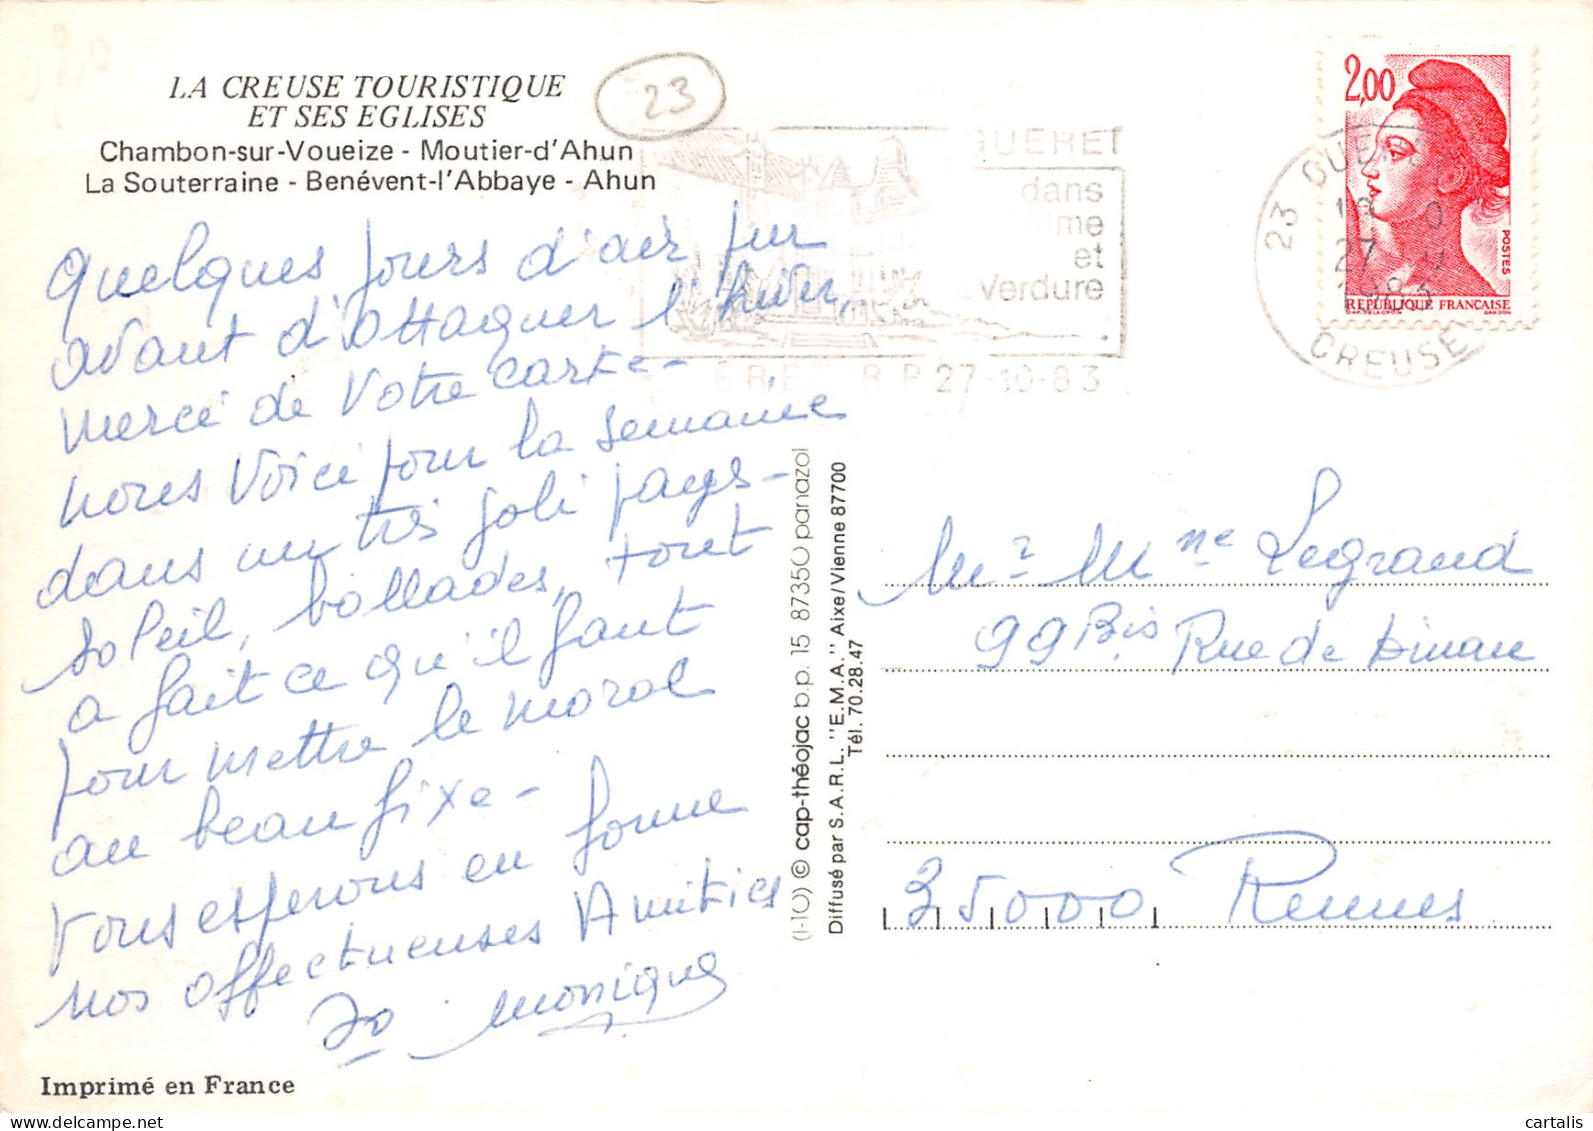 LA CREUSE TOURISTIQUE
ET SES EGLISES
Chambon-sur-Voueize - Moutier-d'Ahun
La Souterraine - Benévent-l'Abbaye - Ahun
23
Quelques jours d'air pur
avant d'attaquer l'hiver,
merci de votre carte -
nous voici pour la semaine
dans un très joli pays -
soleil, ballades, tout
a fait ce qu'il faut
pour mettre le moral
au beau fixe -
Vous esperons en forme
nos affectueuses Amitiés
Jo Monique
Imprimé en France
GUERET
dans
et
Verdure
R P 27-10-83
23
27
1983
CREUSE
2,00
POSTES
REPUBLIQUE FRANCAISE
(I-10) © cap-théojac b.p. 15 87350 panazol
Diffusé par S.A.R.L. "E.M.A." Aixe/Vienne 87700
Tél. 70.28.47
Mr Mme Legrand
99 Bis Rue de Dinan
35000 Rennes
cartalis